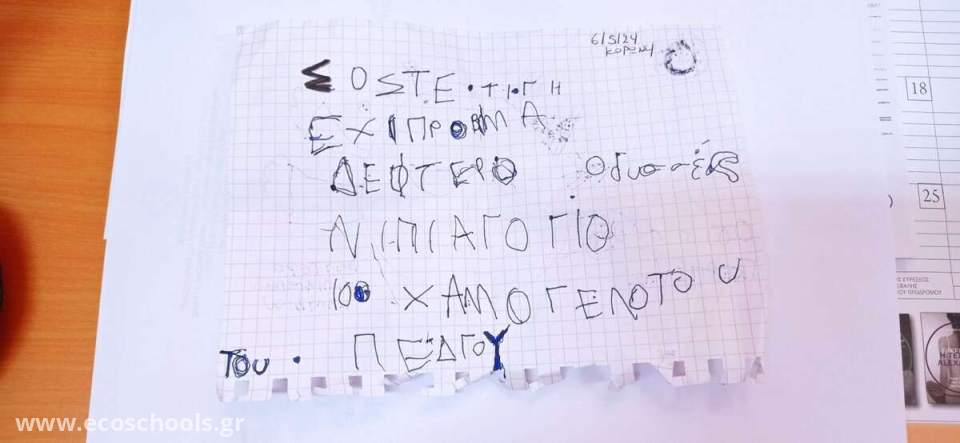 6/5/24
ΚΟΡΩΝΗ
ΣΟΣΤΕ·ΤΙ·ΓΗ
ΕΧΙΠΡΟΒΜΑ
ΔΕΦΤΕΡΟ Οδυσσέας
ΝΙΠΙΑΓΟΓΙΟ
100 ΧΑΜΟΓΕΛΟΤΟΥ
ΤΟΥ · ΠΕΔΓΟΥ
18
25
www.ecoschools.gr